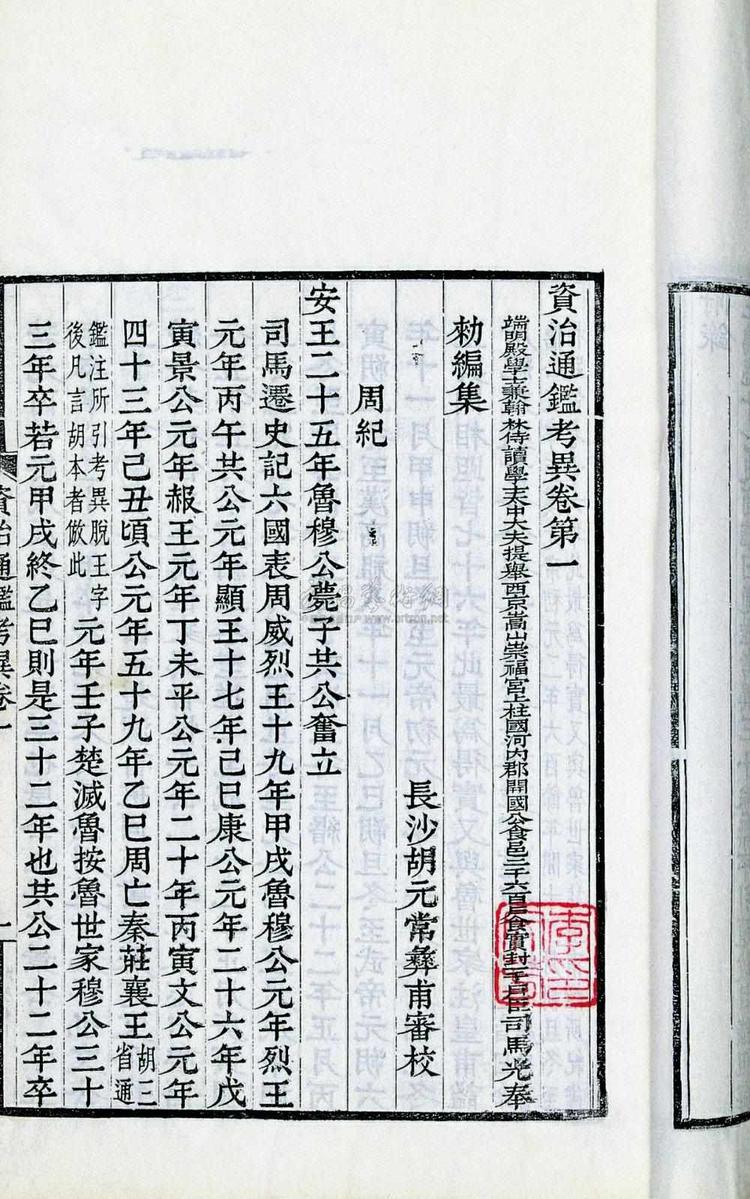 資治通鑑考異卷第一
端明殿學士兼翰林侍讀學士太中大夫提舉西京嵩山崇福宮上柱國河內郡開國公食邑二千六百戶食實封壹阡戶臣司馬光奉
勑編集
長沙胡元常彝甫審校
周紀
安王二十五年魯穆公薨子共公奮立
司馬遷史記六國表周威烈王十九年甲戌魯穆公元年烈王
元年丙午共公元年顯王十七年己巳康公元年二十六年戊
寅景公元年赧王元年丁未平公元年二十年丙寅文公元年
四十三年己丑頃公元年五十九年乙巳周亡秦莊襄王胡三省通
鑑注所引考異脫王字後凡言胡本者倣此元年壬子楚滅魯按魯世家穆公三十
三年卒若元甲戌終乙巳則是三十二年也共公二十二年卒
資治通鑑考異卷一
一